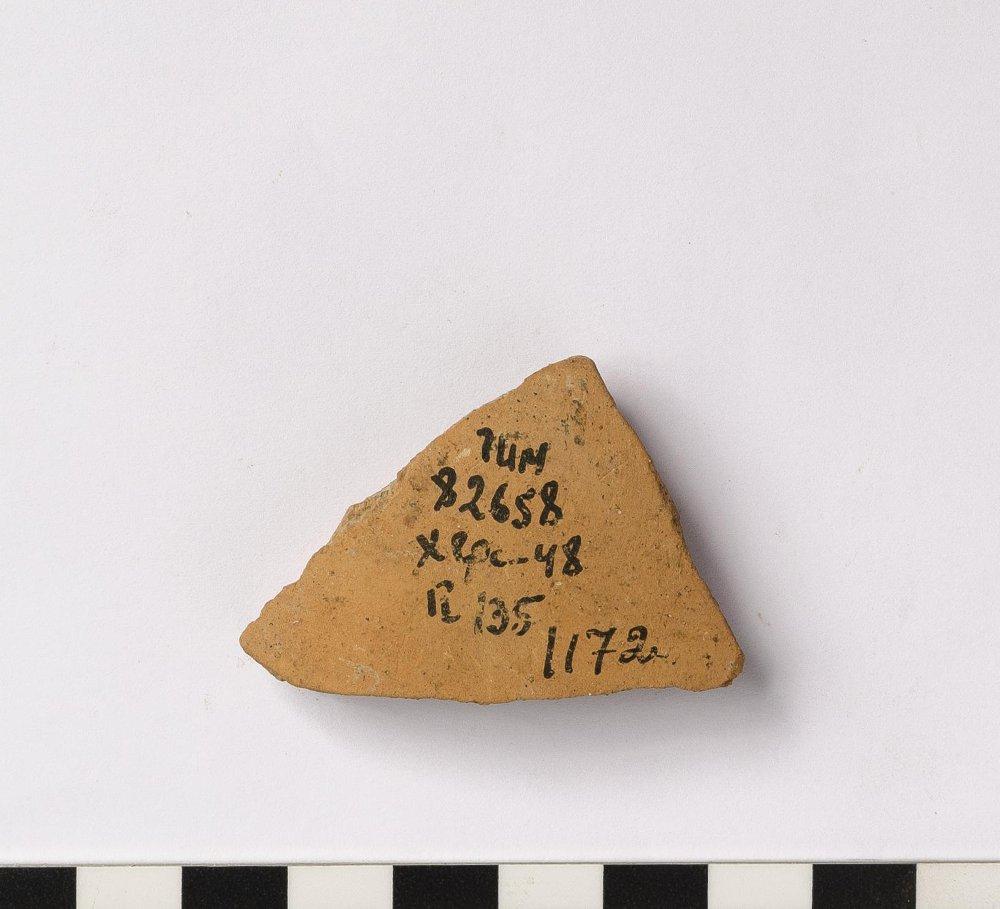 ГИМ
82658
Херс-48
П 135
1172